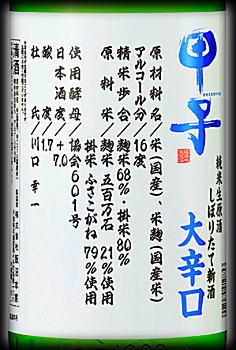 甲子
純米生原酒
しぼりたて新酒
大辛口
原材料名／米(国産)、米麹(国産米)
アルコール分／16度
精米歩合／麹米68%・掛米80%
原料米／麹米 五百万石 21%使用
掛米 ふさこがね 79%使用
使用酵母／協会601号
日本酒度／+7.0
酸度／1.7
杜氏／川口幸一
清酒